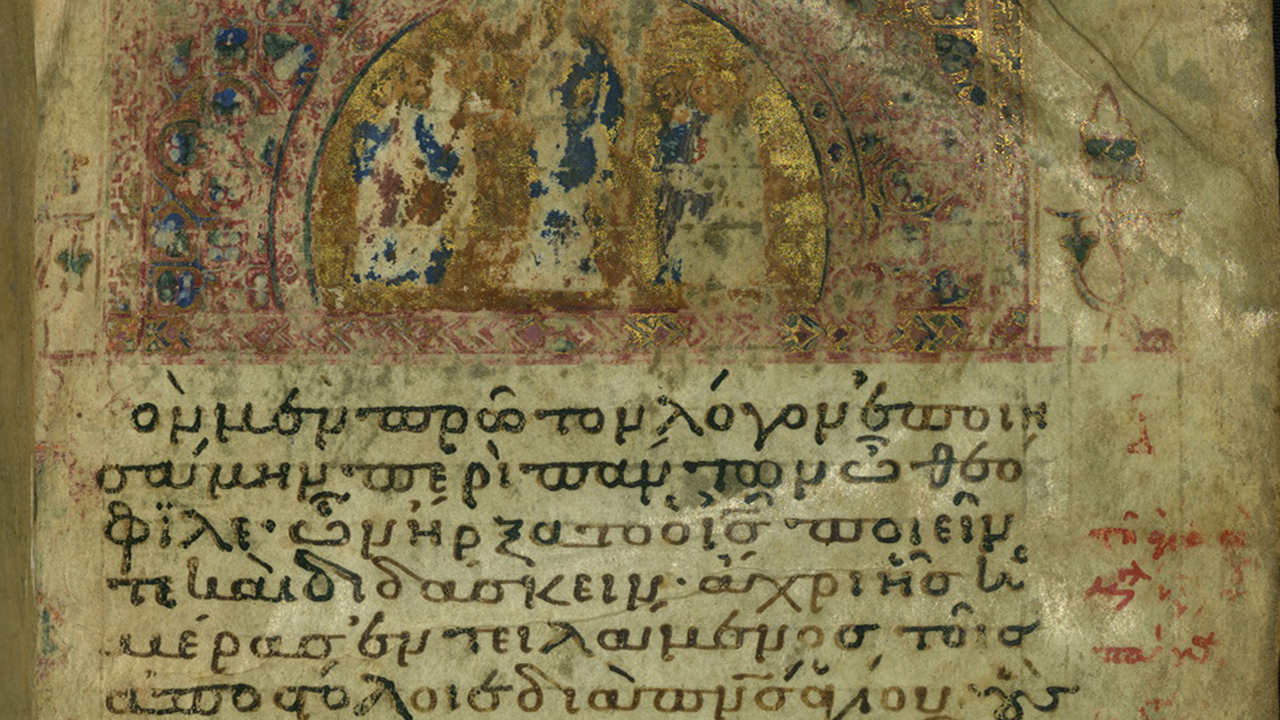 ὸν μὲν πρῶτον λόγον ἐποιη
σάμην περὶ πάντων ὦ θεό
φϊλε· ὧν ἤρξατο ὁ ις̅ ποιεῖν
τε καὶ διδάσκειν· ἄχρι ἧς ἡ
μέρας ἐντειλάμενος τοῖς
ἀποστόλοις διὰ πν̅ς ἁγίου οὓς